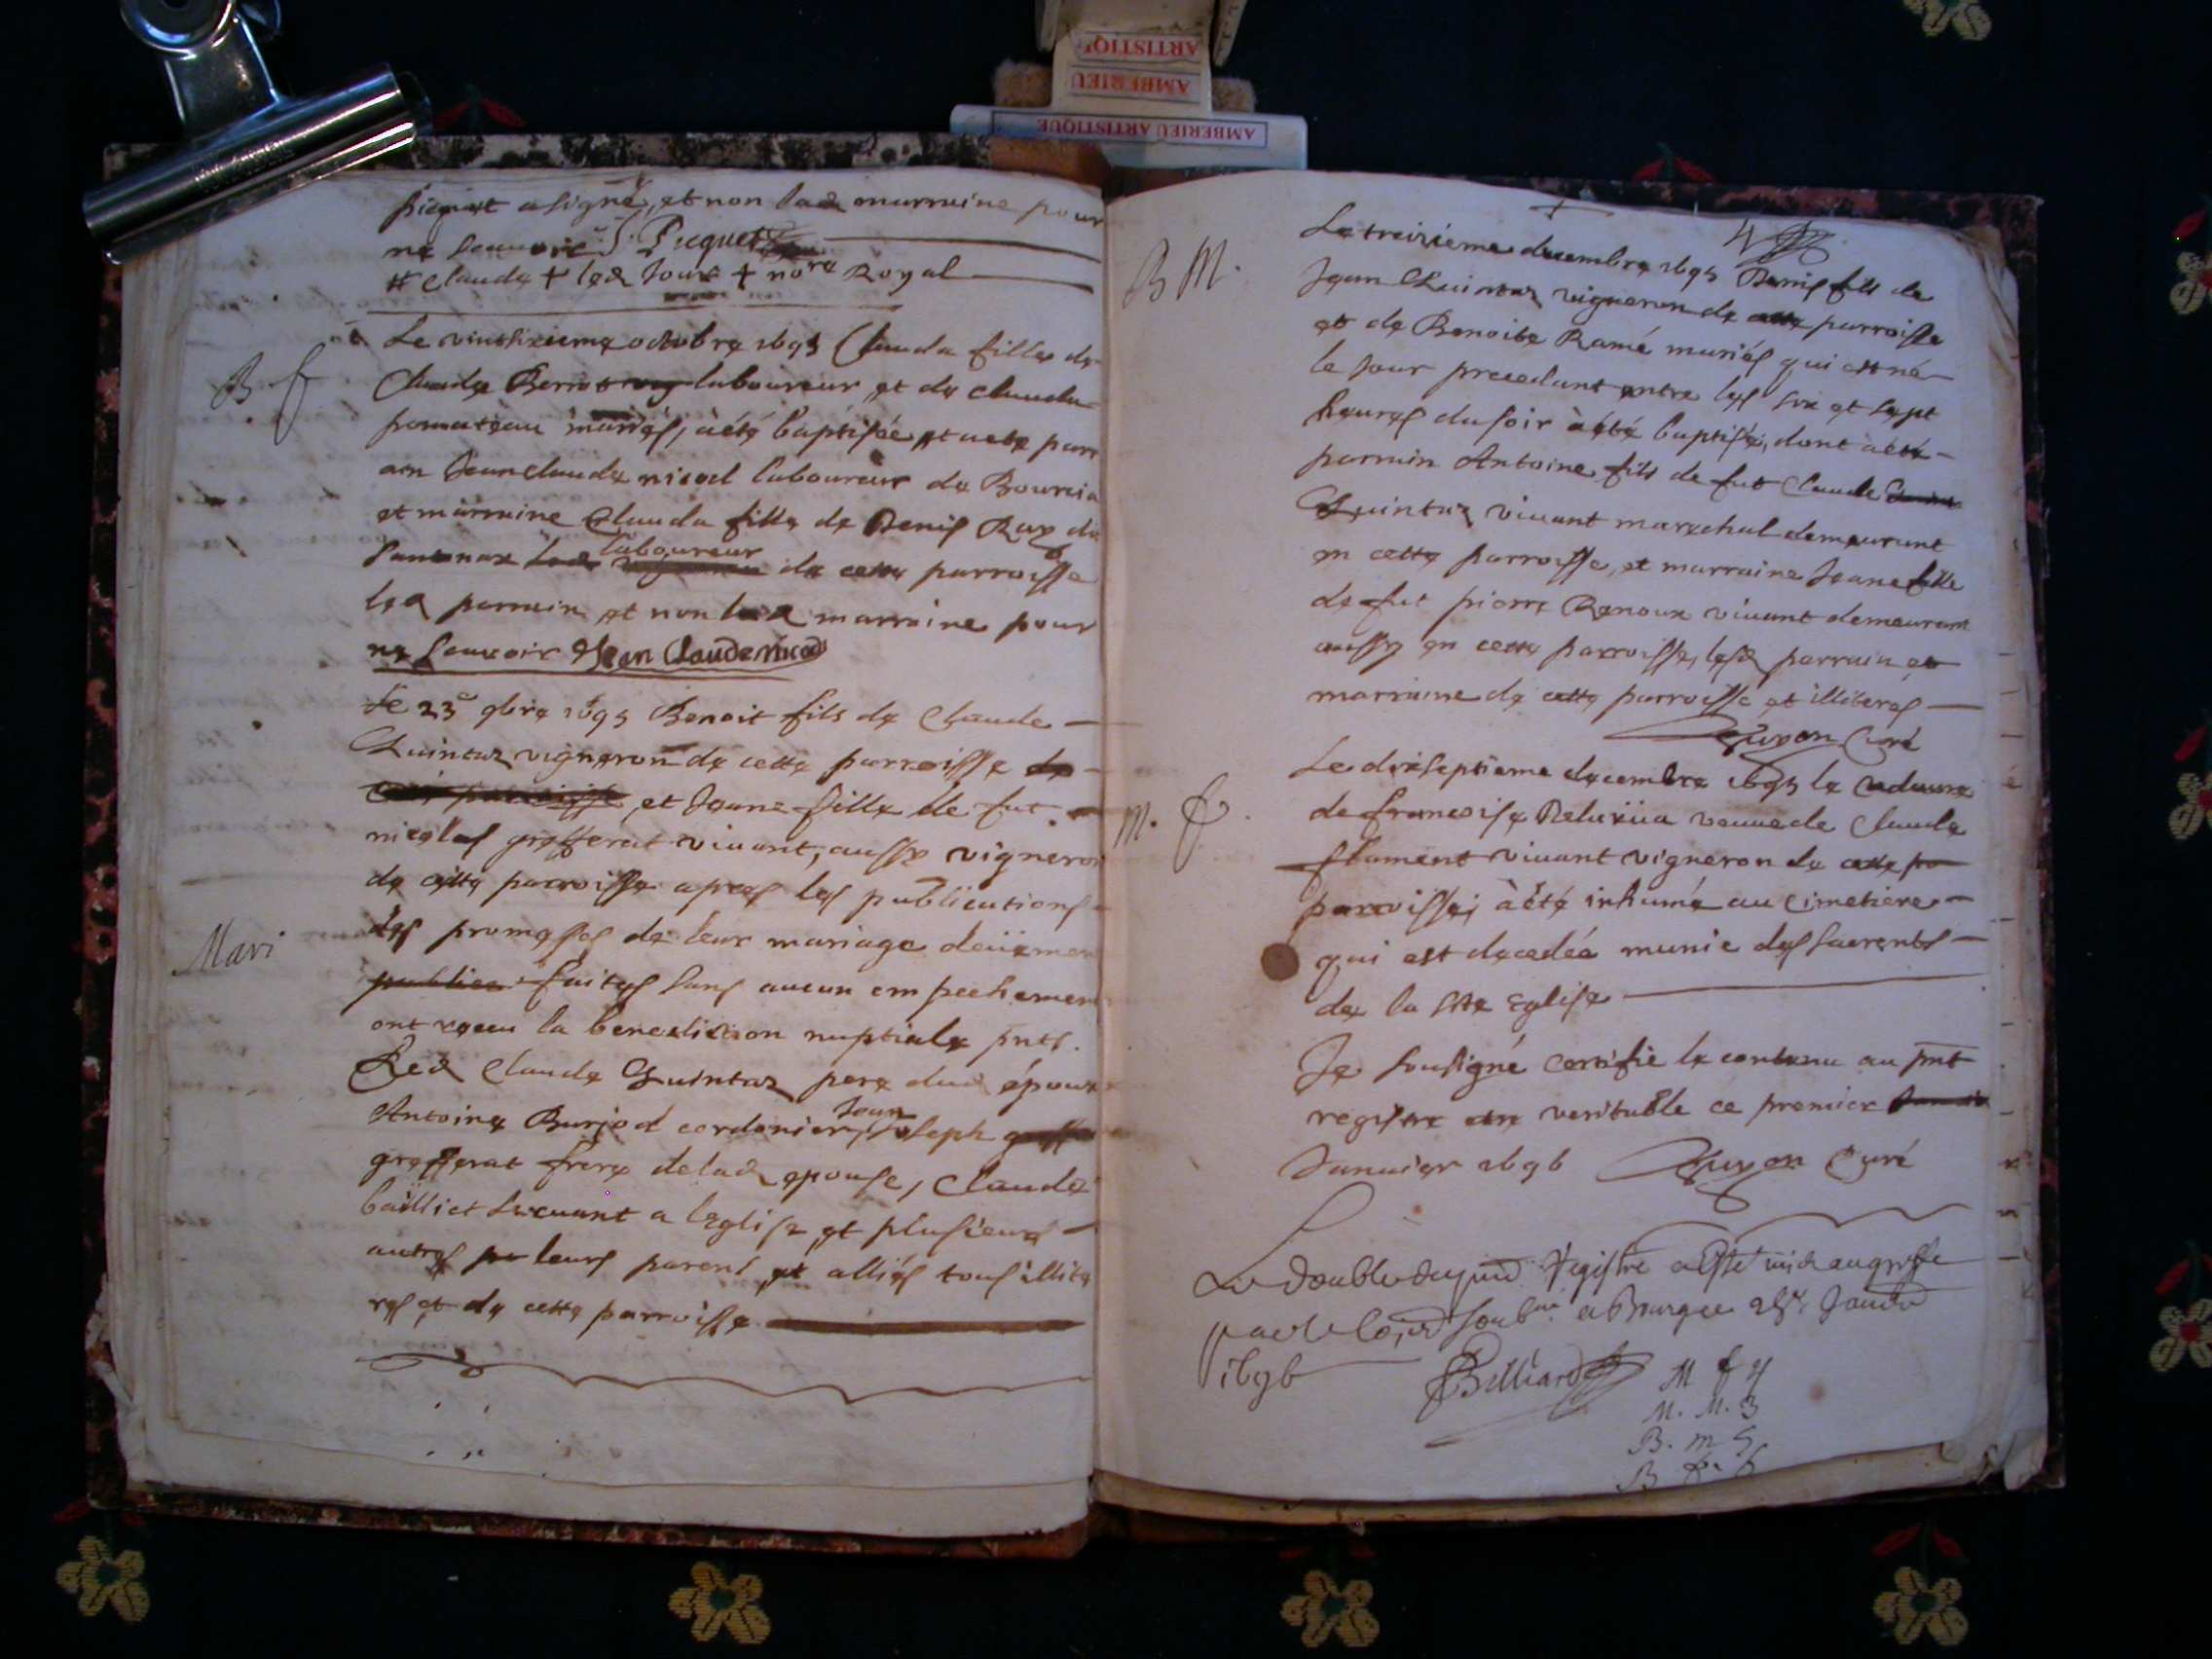 ARTISTIQ
AMBERIEU
AMBERIEU ARTISTIQUE
a signé, et non lad marraine pour
ne scauoir J. Picquet
# Claude + led jour + nore Royal
B f
Le vinthixieme octobre 1695 Clauda fille de
Claude laboureur et de clauda
mariés, à été baptisée, et a ete parr
ain Jean claude nicod laboureur de
et marraine Clauda fille de Denis Ruy du
laboureur
de cette parroisse
led parrain et non lad marraine pour
ne scauoir Jean Claude nicod
Le 23e 9bre 1695 Benoit fils de Claude
Quintaz vigneron de cette parroisse de
et Jeane fille de fut
nicolas grefferat viuant, aussy vigneron
de cette parroisse apres les publications
Mari
des promesses de leur mariage deüemen
publiee faites sans aucun empechement
ont receu la benediction nuptiale pnts.
Led Claude Quintaz pere dud époux
Jean
Antoine Burjod cordonier, Joseph
grefferat frere de lad epouse, Claude
bailliet seruant a leglise et plusieurs
autres leurs parens et alliés tous illite
res et de cette parroisse
4
B M.
Le treizieme decembre 1695 Denis fils de
Jean Quintaz vigneron de cette parroisse
et de Benoite Ramé mariés qui est né
le jour precedant entre les six et sept
heures du soir à été baptisé, dont a été
parrain Antoine fils de fut Claude
Quintaz viuant marechal demeurant
en cette parroisse, et marraine Jeane fille
de fut pierre Renoux viuant demeurant
aussy en cette parroisse, lesd parrain et
marraine de cette parroisse et illiteres
Guyon Curé
M. f.
Le dixseptieme decembre 1695 le cadaure
de francoise veuue de Claude
flament viuant vigneron de cette pa
parroisse, à été inhumé au cimetiere
qui est decedée munie des sacrents
de la Ste Eglise
Je sousigné certifie le contenu au pnt
registre etre veritable ce premier
Januier 1696 Guyon Curé
Le double du pnt Registre a esté mis au greffe
par le a Bourg ce 28e
1696 Billiard
M f 4
M. M. 3
B. m 5
B f. 6